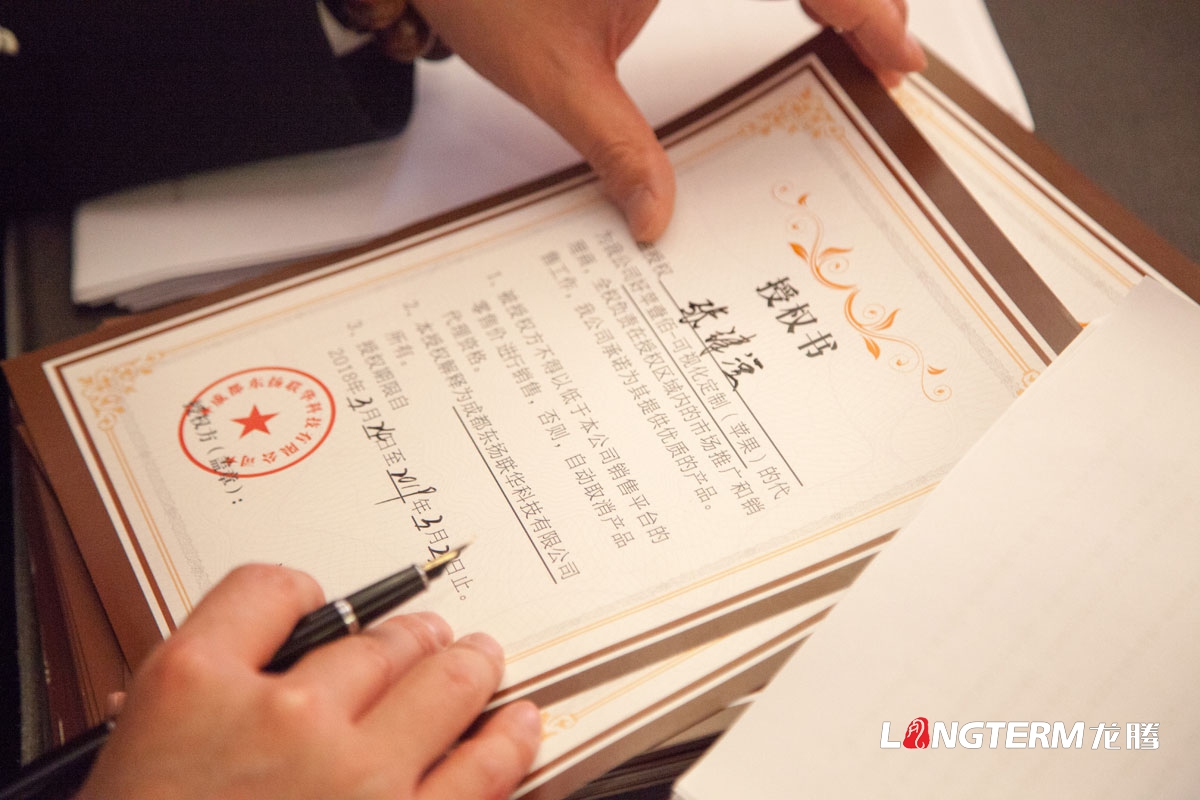 授权书
授权
张
为我公司好苹壹佰-可视化定制(苹果)的代
理商,全权负责在授权区域内的市场推广和销
售工作,我公司承诺为其提供优质的产品。
1、被授权方不得以低于本公司销售平台的
零售价 进行销售,否则,自动取消产品
代理资格。
2、本授权解释为成都东扬联华科技有限公司
所有.
3、授权期限自
2018年3月 日至2019年3月2 日止。
授权方(盖章):
成都东扬联华科技有限公司
LONGTERM龙腾